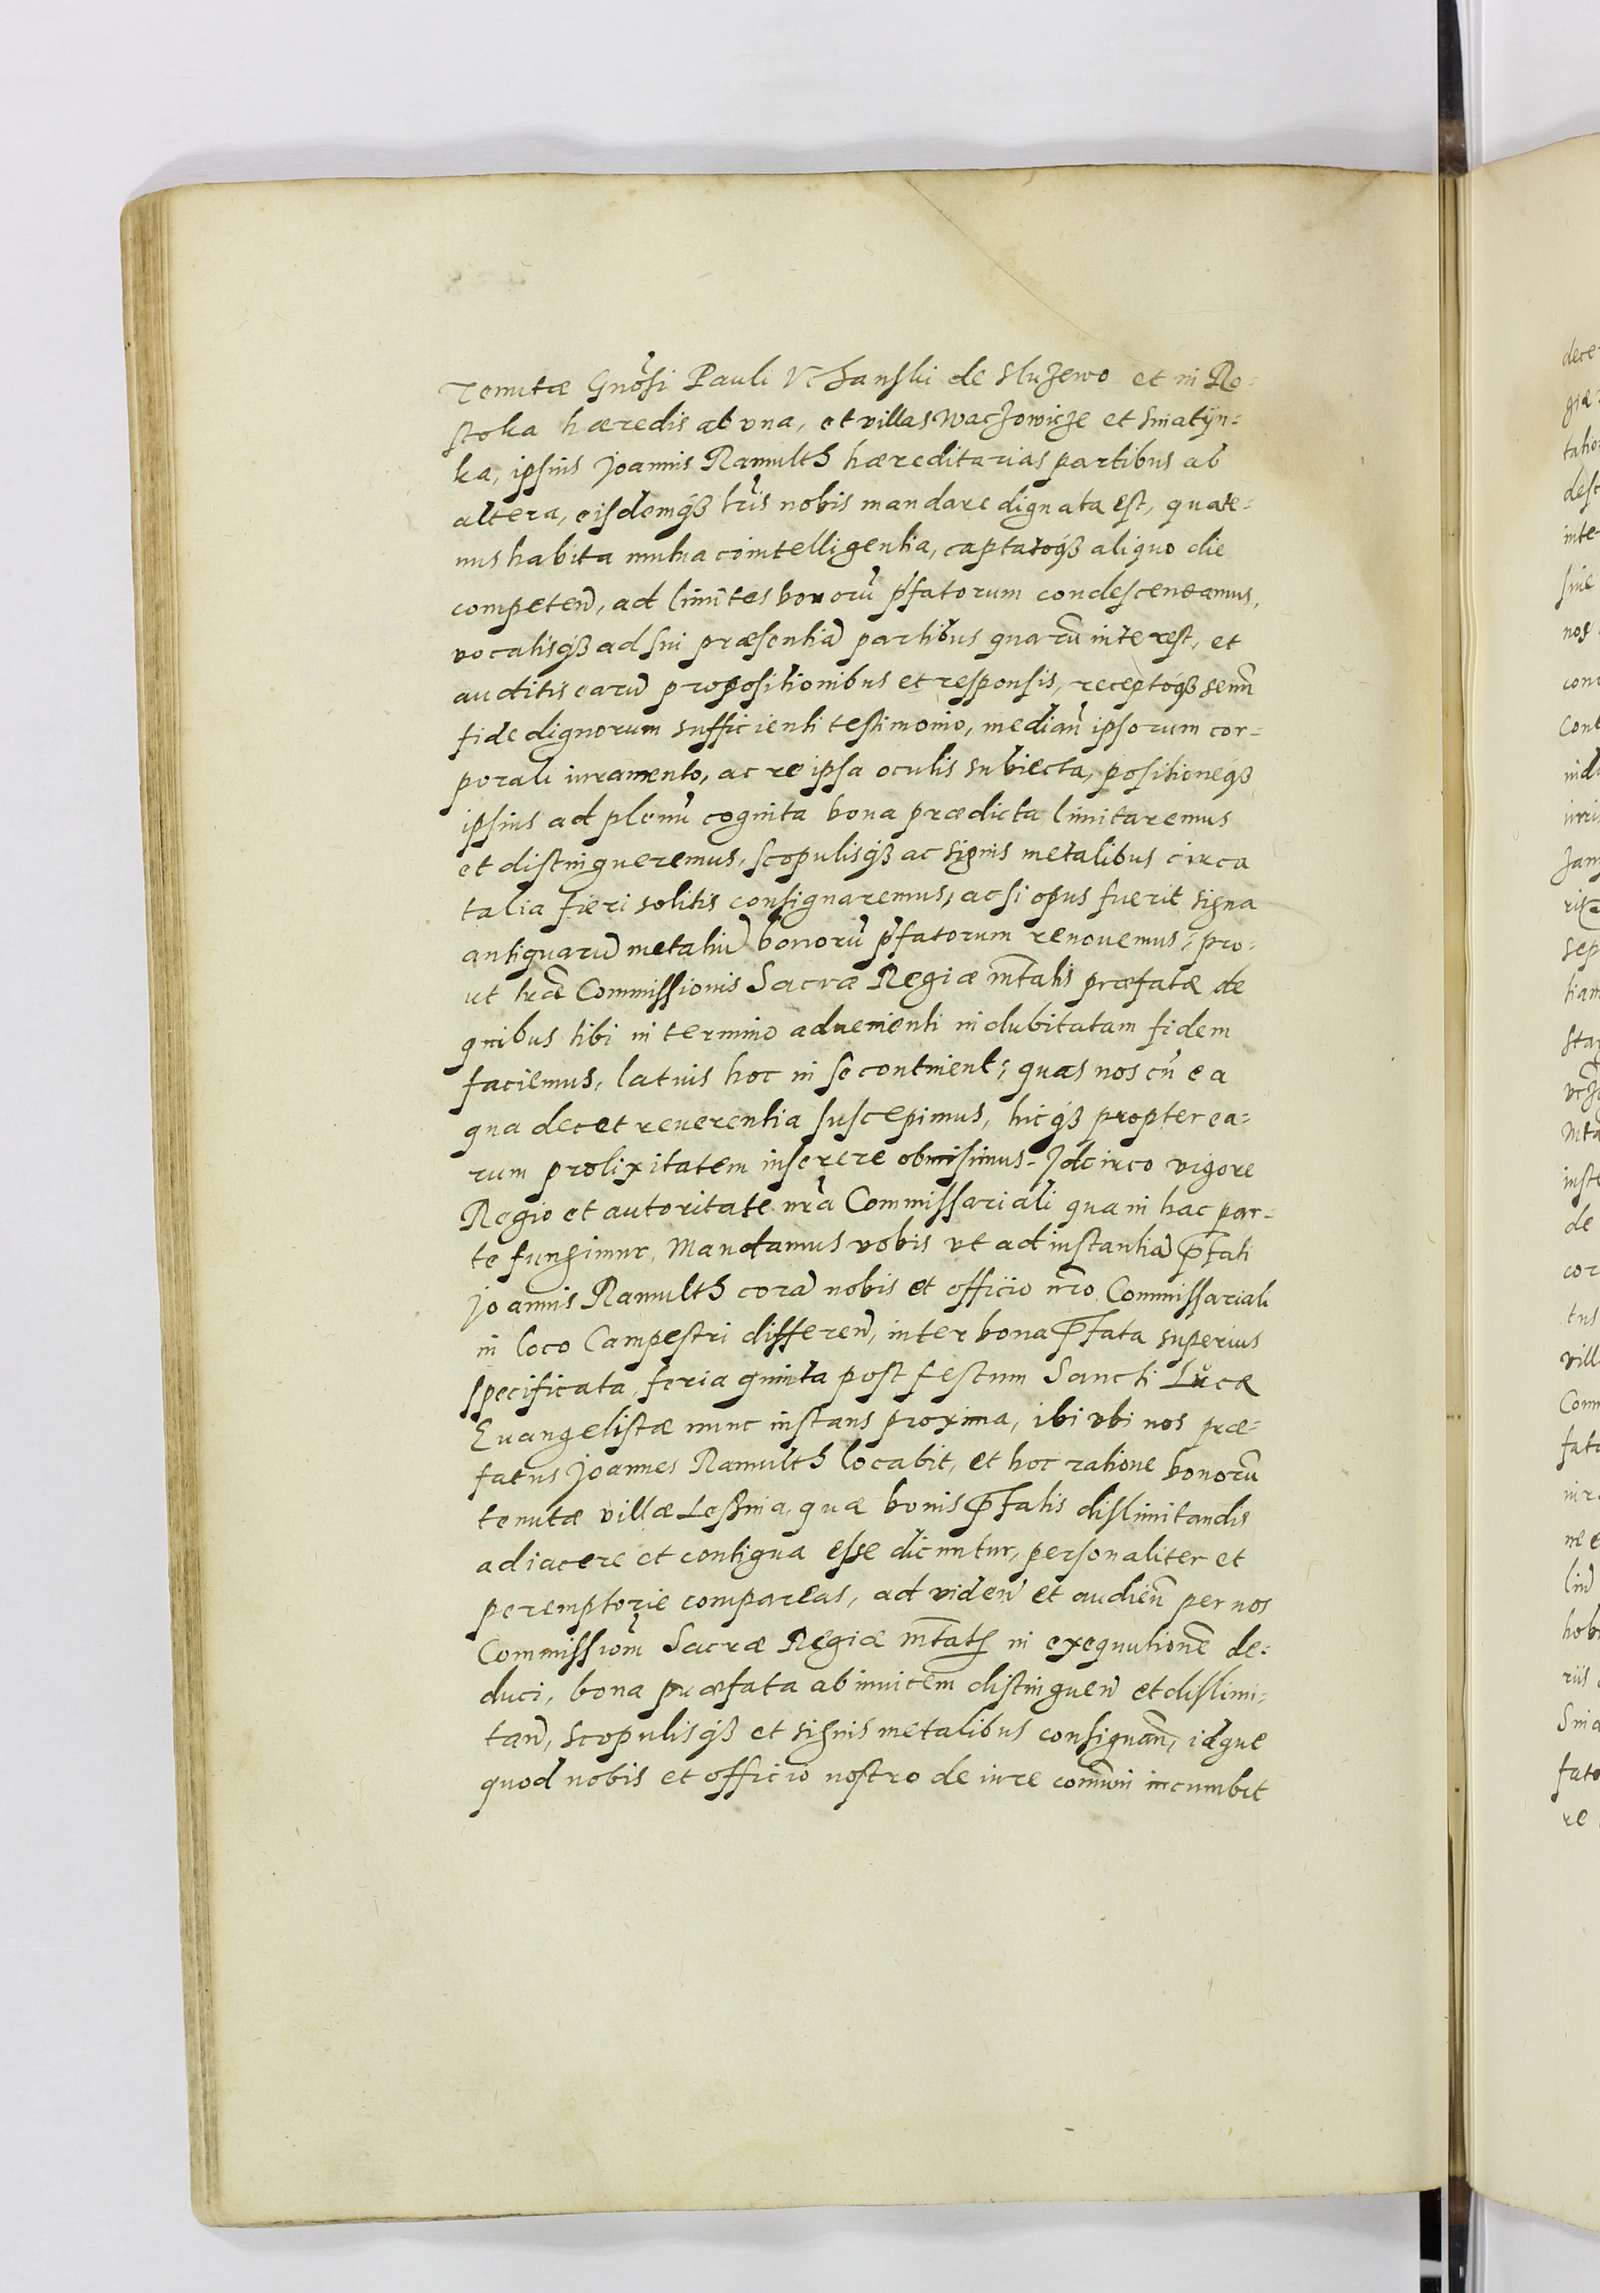 Tenutæ Gnōsi Pauli Vchanski de Sluzewo et in Ro-
stoka hæredis ab vna, et villas Waczowicze et Sniatyn-
ka, ipsius Joannis Ramulth hæreditarias partibus ab
altera, eisdemqʒ lr̄is nobis mandare dignata est, quate-
nus habita mutua cointelligentia, captatoqʒ aliquo die
competeñ, ad limites bonorū p̄fatorum condescendamus,
vocatisqʒ ad sui præsentiā partibus quarū interest, et
auditis earū propositionibus et responsis, receptoqʒ senū
fide dignorum sufficienti testimonio, mediañ ipsorum cor-
porali iuramento, ac re ipsa oculis subiecta, positioneqʒ
ipsius ad plenū cognita bona prædicta limitaremus
et distingueremus, scopulisqʒ ac signis metalibus circa
talia fieri solitis consignaremus, ac si opus fuerit signa
antiquarū metaliū bonorū p̄fatorum renouemus, pro-
ut lr̄æ Commissionis Sacræ Regiæ Mtatis præfatæ de
quibus tibi in termino aduenienti indubitatam fidem
faciemus, latius hoc in se continent, quas nos cū ea
qua decet reuerentia suscepimus, hicqʒ propter ea-
rum prolixitatem inserere obmisimus. Idcirco vigore
Regio et autoritate nr̄a Commissariali qua in hac par-
te fungimur, Mandamus vobis vt ad instantiā p̄fati
Joannis Ramulth corā nobis et officio nr̄o Commissariali
in loco Campestri differeñ, inter bona p̄fata superius
specificata, feria quinta post festum Sancti Lucæ
Euangelistæ nunc instans proxima, ibi vbi nos præ-
fatus Joannes Ramulth locabit, et hoc ratione bonorū
tenutæ villæ Leßnia, quæ bonis p̄fatis dislimitandis
adiacere et contigua esse dicuntur, personaliter et
peremptorie compareas, ad videñ et audieñ per nos
Commissioñ Sacræ Regiæ Mtatis in exequutionē de-
duci, bona præfata abinuicem distingueñ et dislimi-
tañ, scopulisqʒ et signis metalibus consignañ, idque
quod nobis et officio nostro de iure com̄uni incumbit